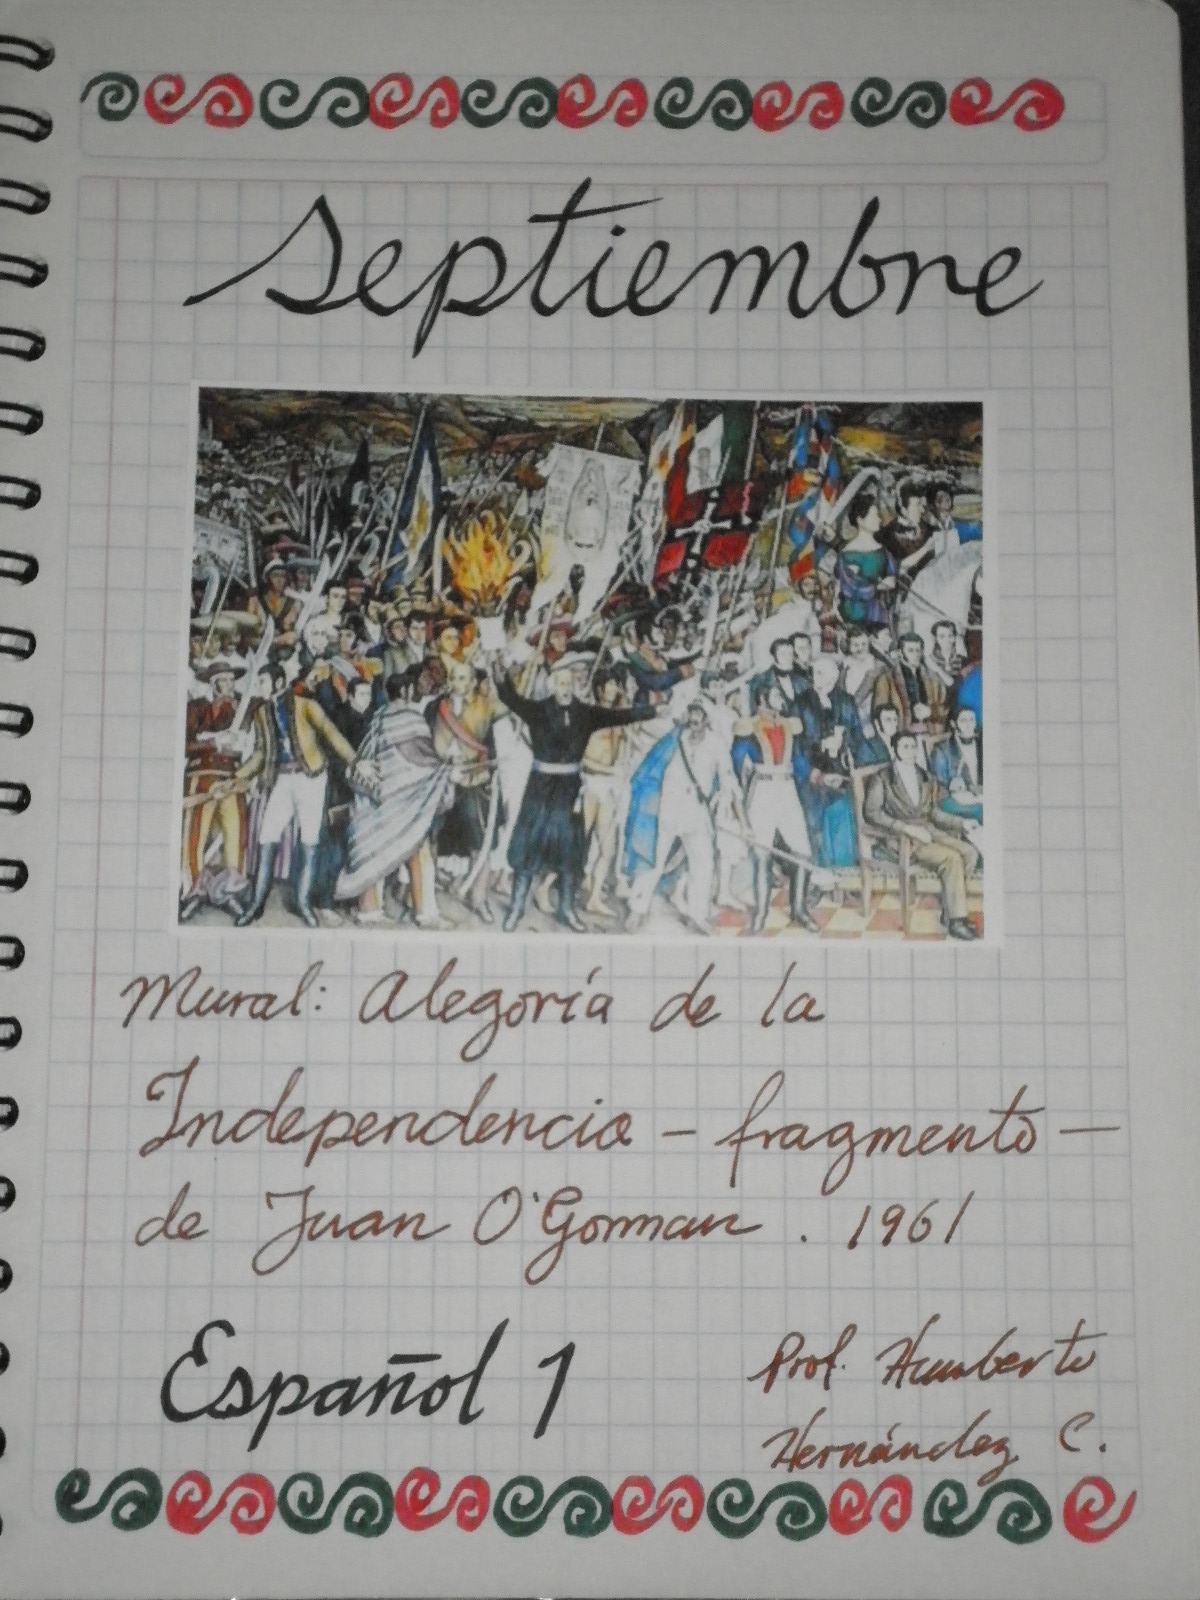 Septiembre
Mural: Alegoría de la
Independencia - fragmento -
de Juan O'Gorman. 1961
Español 1
Prof. Humberto
Hernández C.